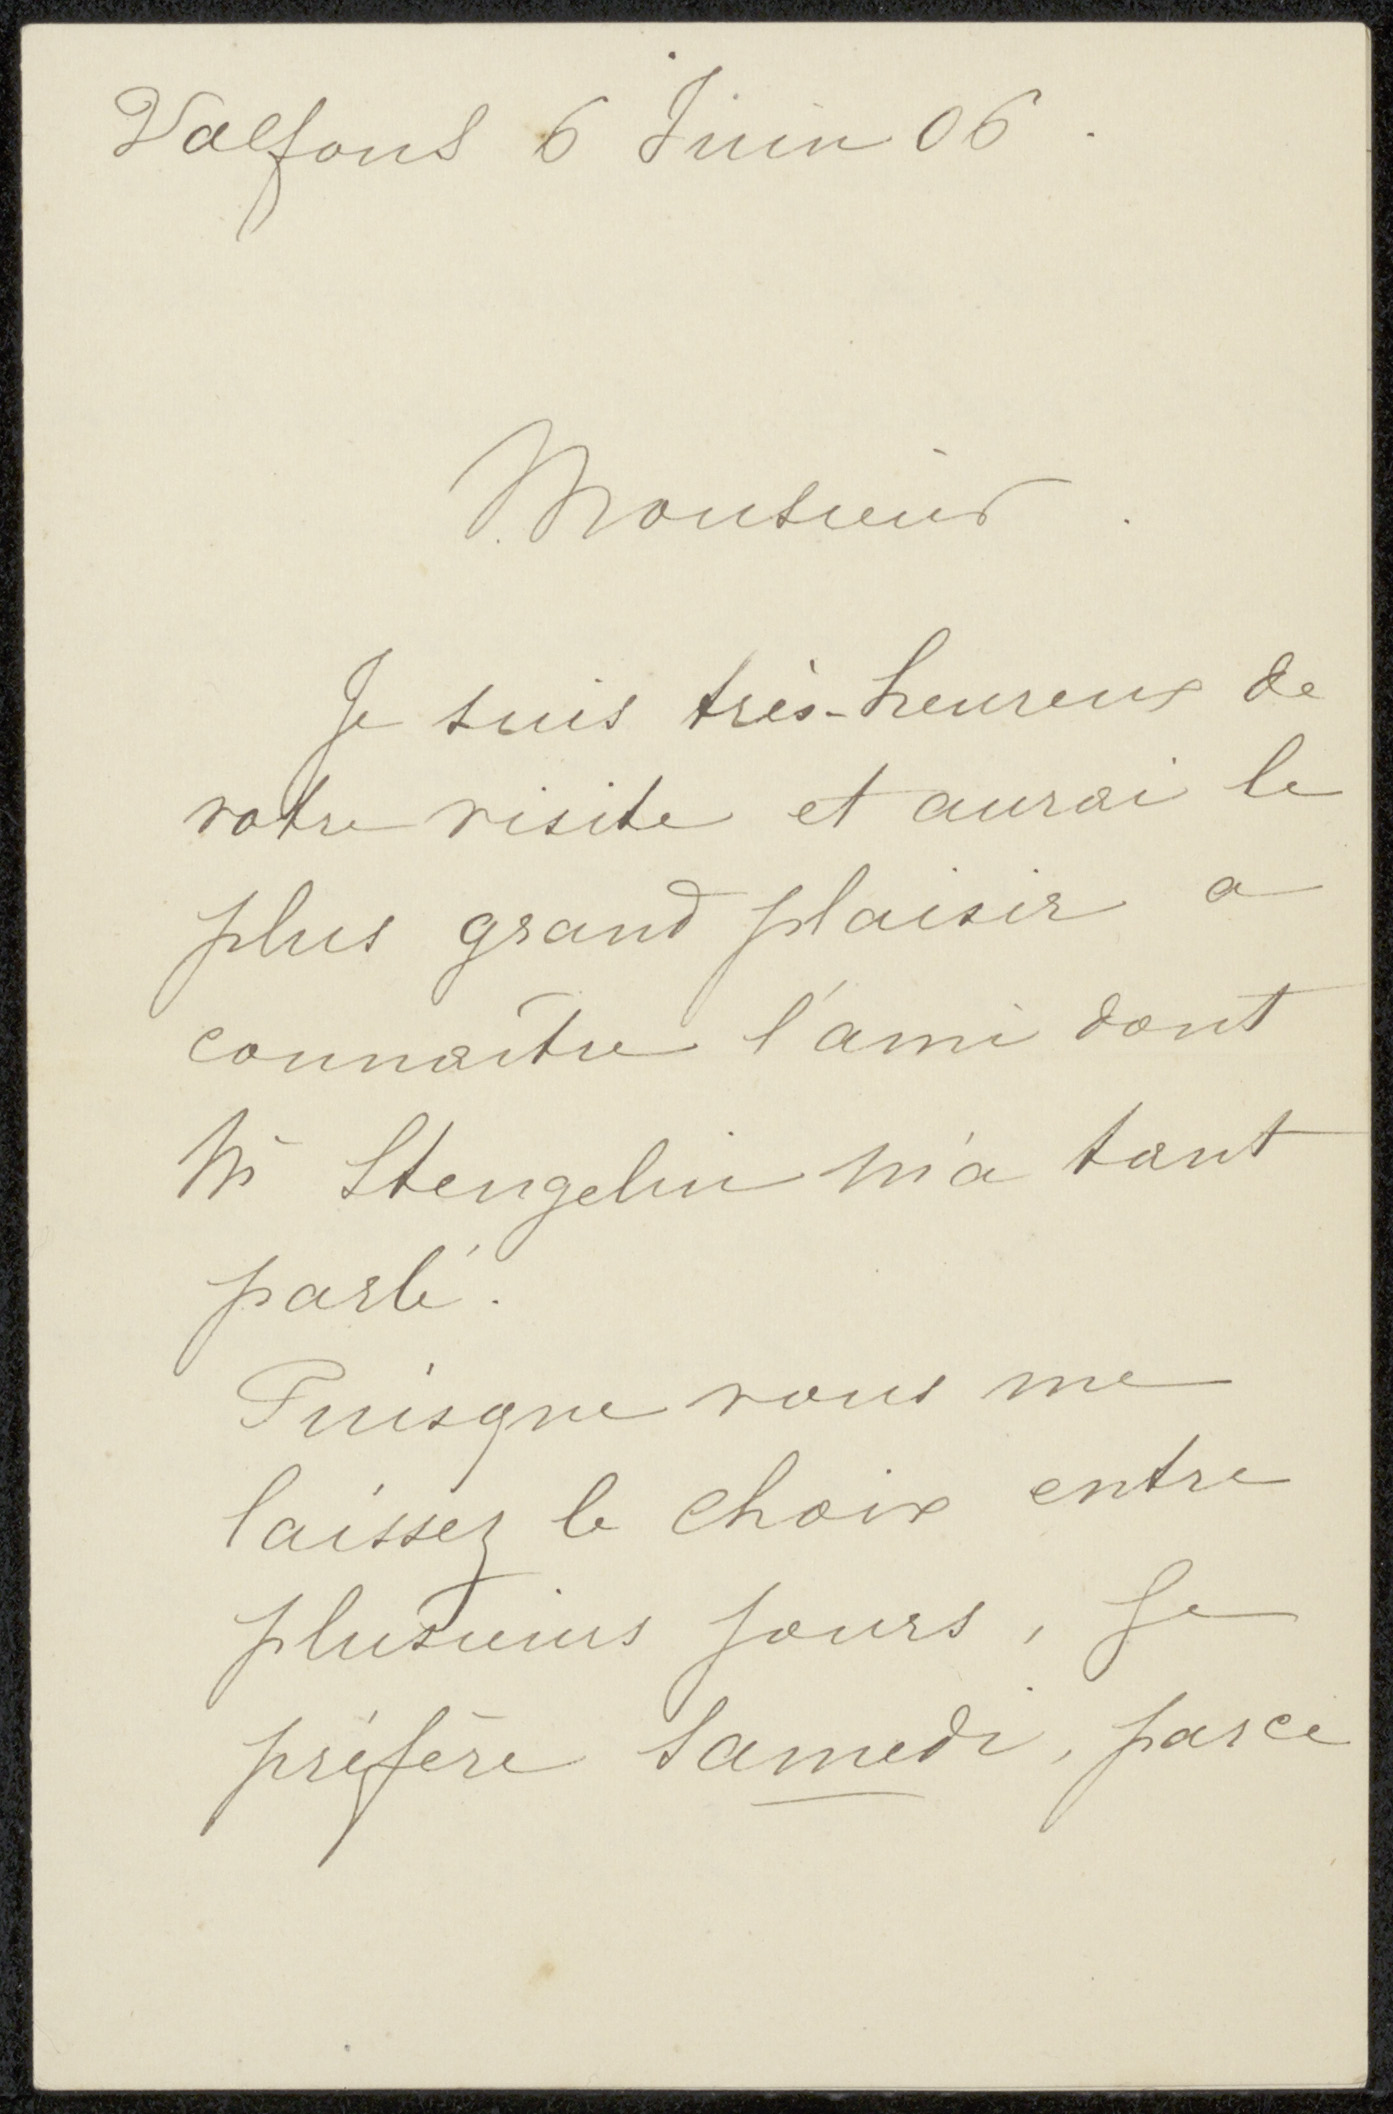 Valfons 6 Juin 06.
Monsieur.
Je suis très-heureux de
votre visite et aurai le
plus grand plaisir a
connaître l'ami dont
Mr Stengelin m'a tant
parlé.
Puisque vous me
laissez le choix entre
plusieurs jours, je
préfère Samedi, parce